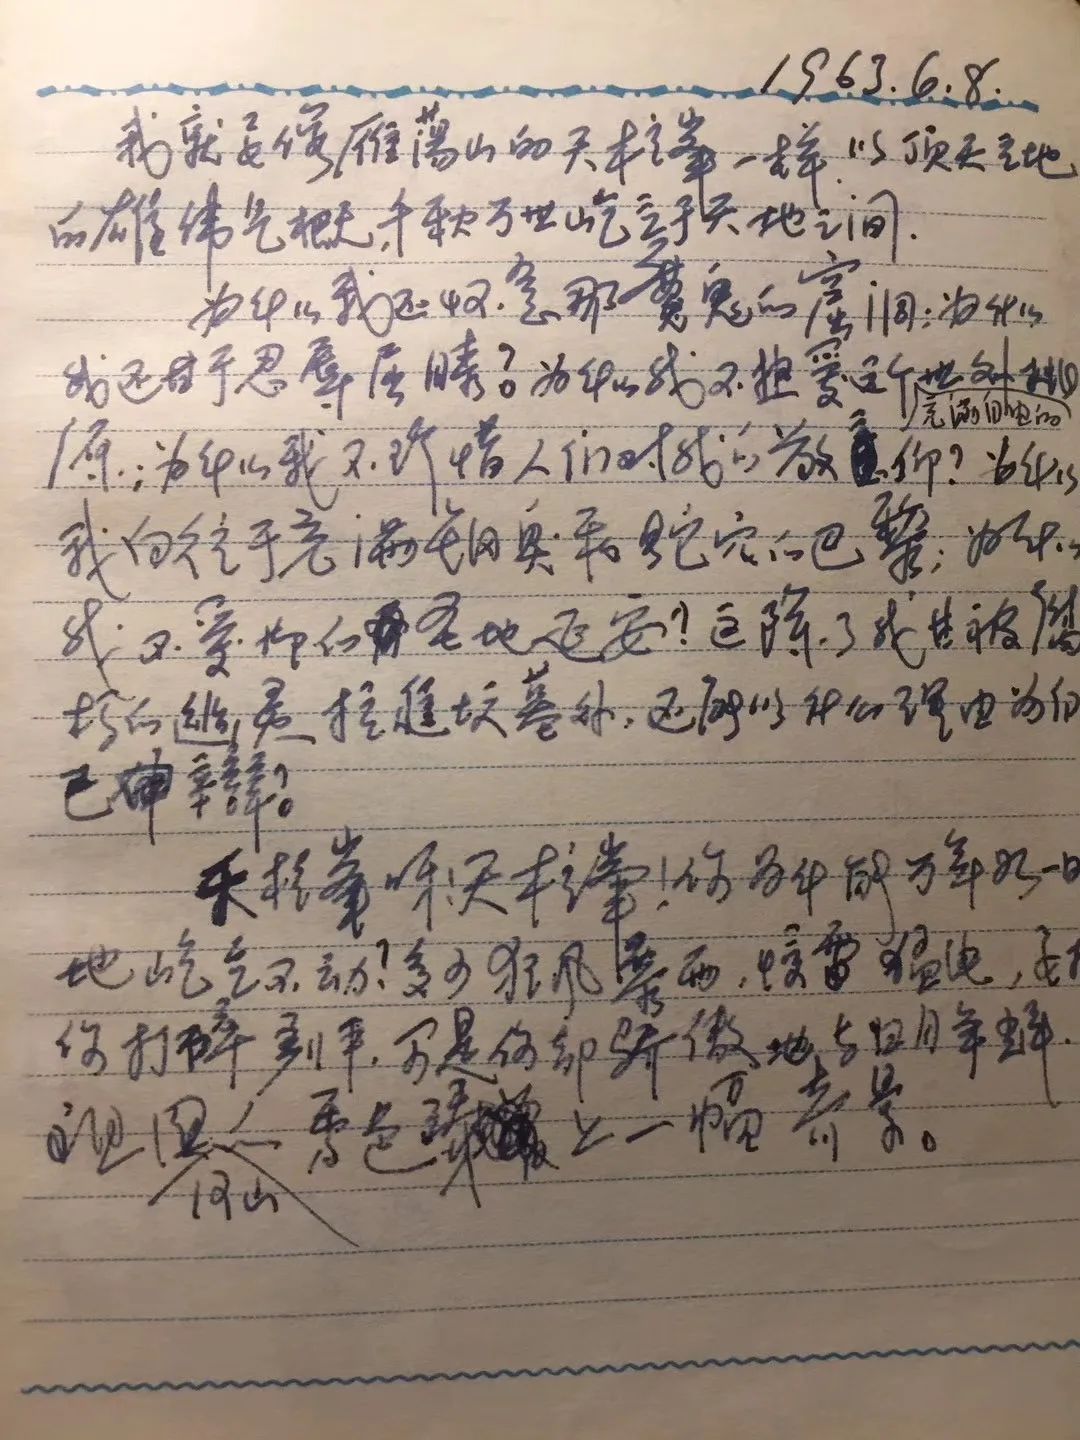 1963.6.8.
我就要像雁荡山的天柱峰一样,以顶天立地
的雄伟气概,千秋万世屹立于天地之间.
为什么我还收.念那魔鬼的窟洞;为什么
我还甘于忍辱屈膝?为什么我不想爱这个世外桃
充满阳光的
原.;为什么我不珍惜人们对我的敬仰?为什么
我向往于充满铜臭和蛇穴的巴黎;为什么
我不爱慕仰的圣地延安?这除了我甘被
的拉进坟墓外,还能以什么理由为自
己申辩?
天柱峰呀!天柱峰!你为什能万年如一日
地屹立不动?多少狂风暴雨,惊雷猛电,要把
你打碎 削平,可是你却骄傲地与日月争辉.
祖国 景色 上一幅奇景。
河山